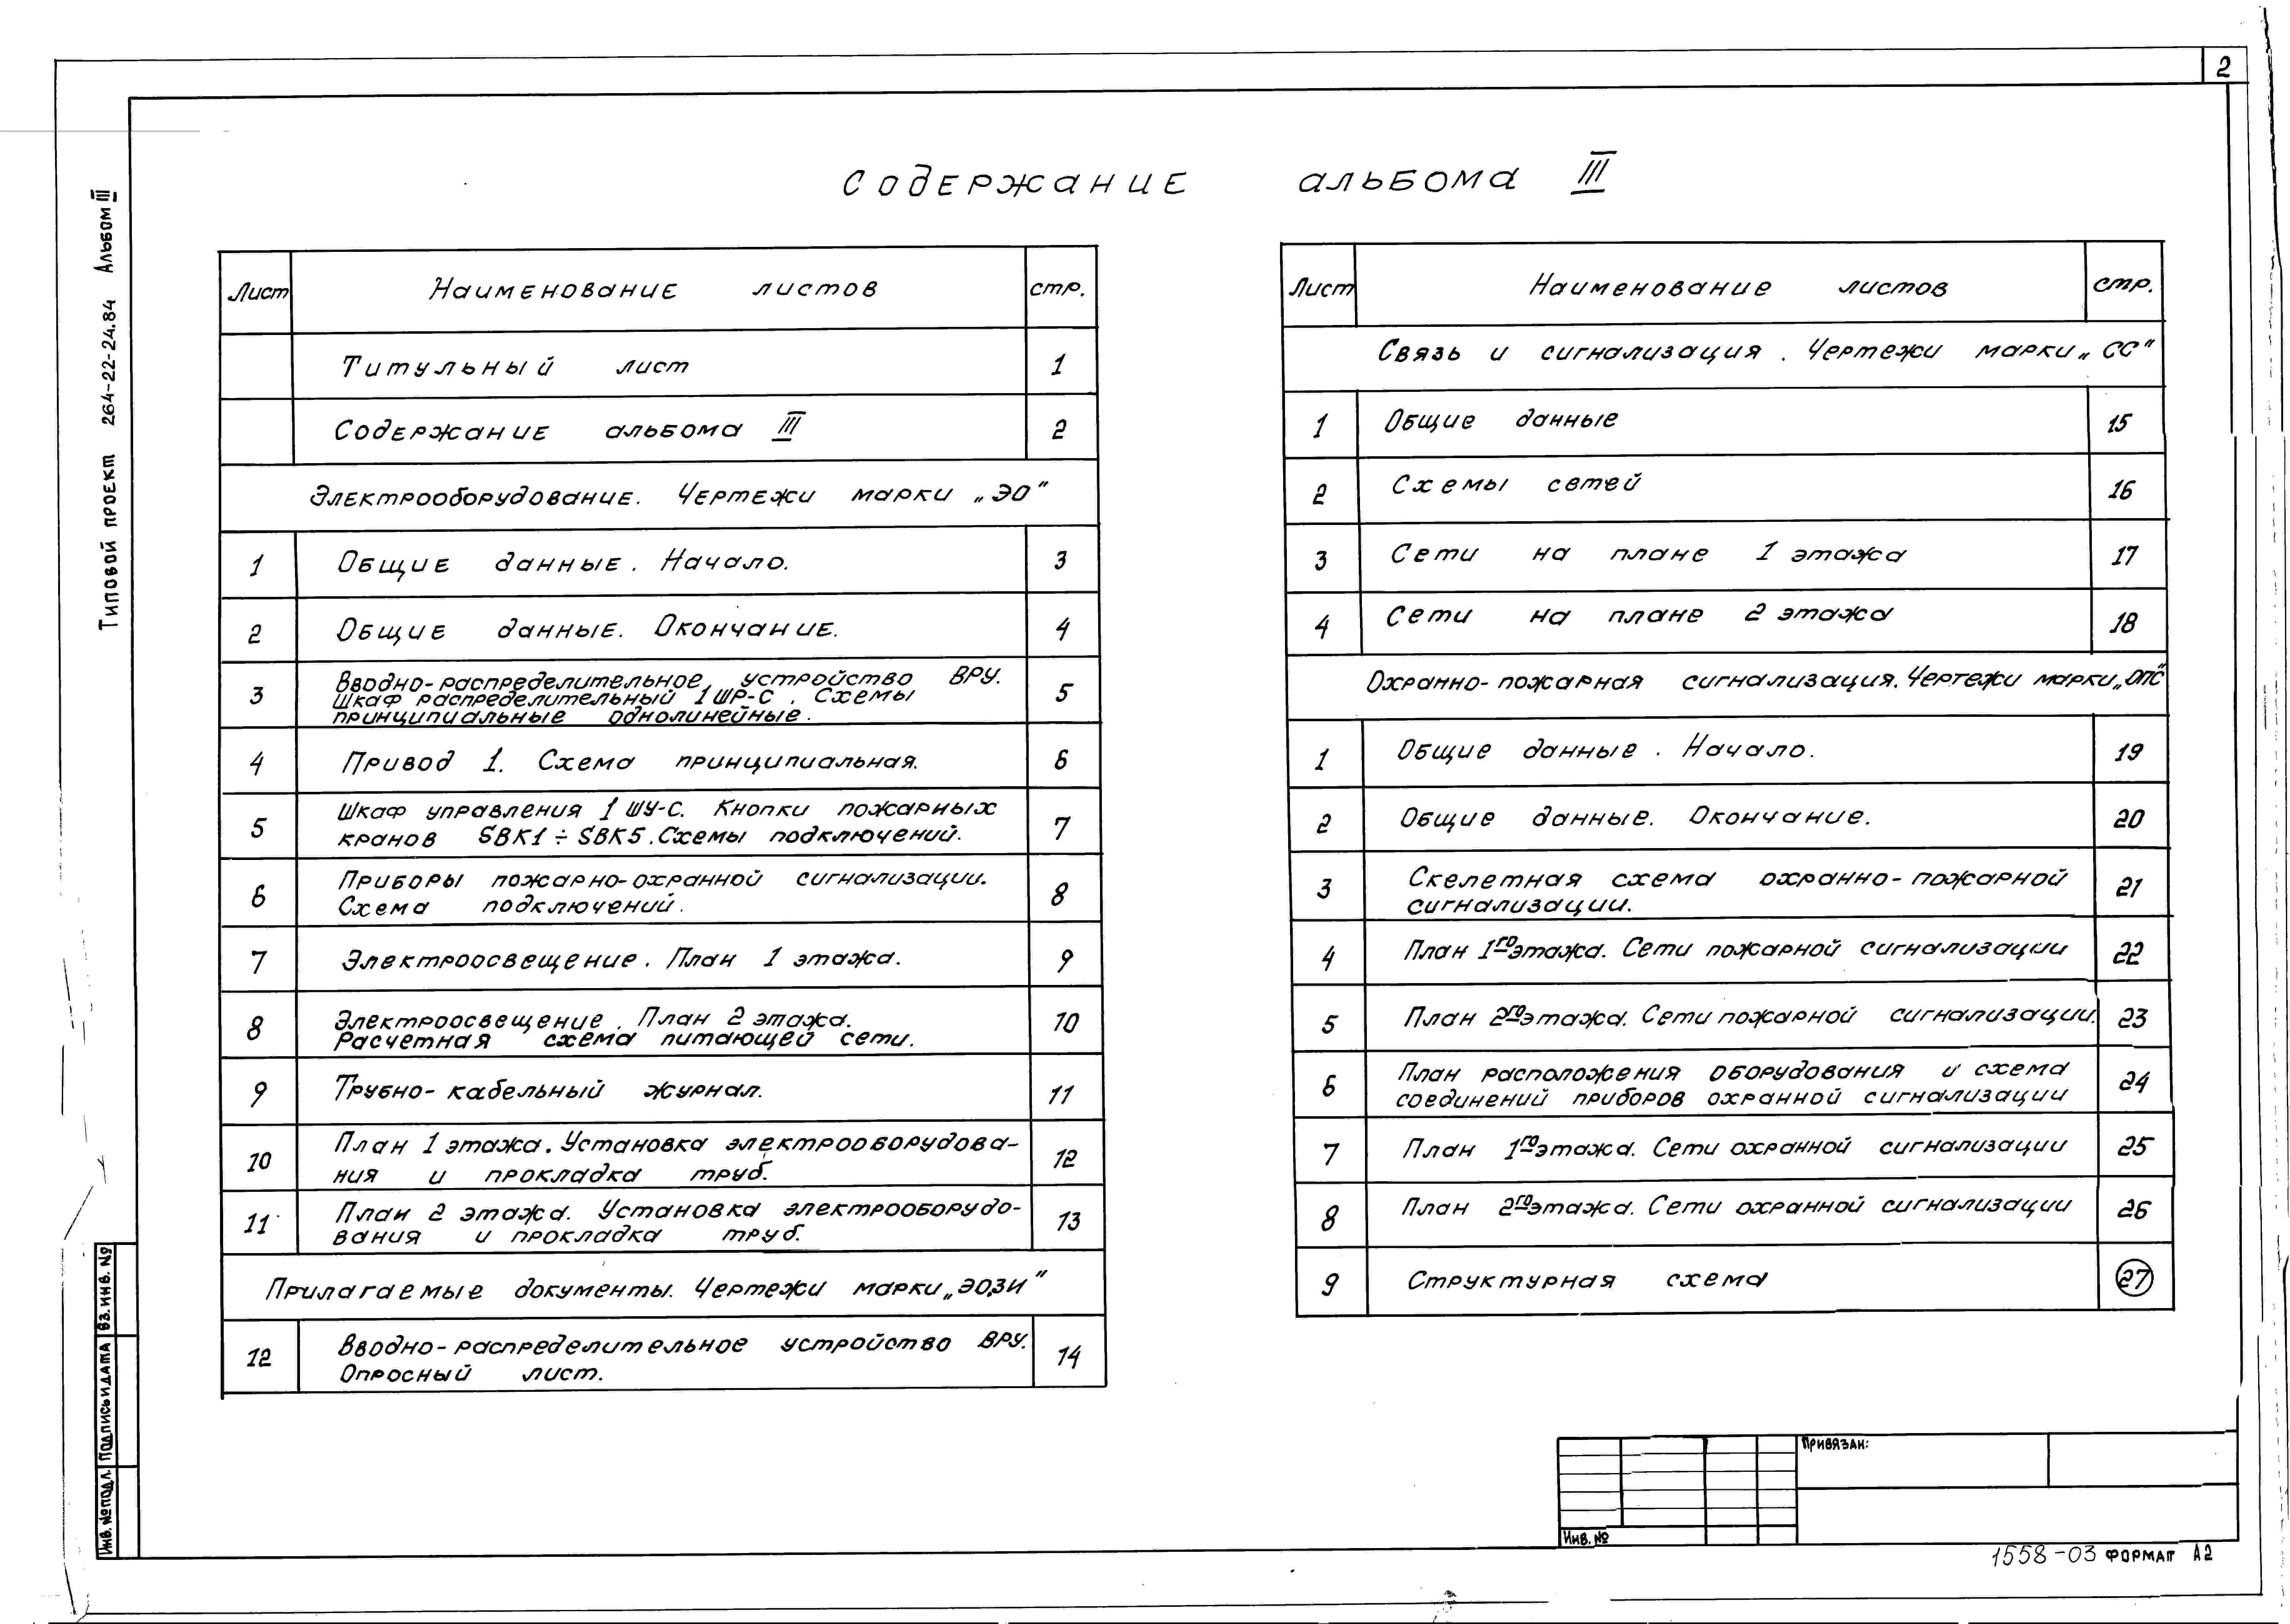 2
Содержание альбома III
Типовой проект 264-22-24.84 Альбом III
Лист Наименование листов стр.
Титульный лист 1
Содержание альбома III 2
Электрооборудование. Чертежи марки „ЭО"
1 Общие данные. Начало. 3
2 Общие данные. Окончание. 4
Вводно-распределительное устройство ВРУ.
3 Шкаф распределительный 1ШР-С. Схемы 5
принципиальные однолинейные.
4 Привод 1. Схема принципиальная. 6
Шкаф управления 1 ШУ-С. Кнопки пожарных
5 кранов SBK1 ÷ SBK5. Схемы подключений. 7
Приборы пожарно-охранной сигнализации.
6 Схема подключений. 8
7 Электроосвещение. План 1 этажа. 9
8 Электроосвещение. План 2 этажа. 10
Расчетная схема питающей сети.
9 Трубно-кабельный журнал. 11
План 1 этажа. Установка электрооборудова-
10 ния и прокладка труб. 12
План 2 этажа. Установка электрооборудо-
11 вания и прокладка труб. 13
Прилагаемые документы. Чертежи марки „ЭО.ЗИ"
12 Вводно-распределительное устройство ВРУ. 14
Опросный лист.
Лист Наименование листов стр.
Связь и сигнализация. Чертежи марки „СС"
1 Общие данные 15
2 Схемы сетей 16
3 Сети на плане 1 этажа 17
4 Сети на плане 2 этажа 18
Охранно-пожарная сигнализация. Чертежи марки „ОПС"
1 Общие данные. Начало. 19
2 Общие данные. Окончание. 20
3 Скелетная схема охранно-пожарной 21
сигнализации.
4 План 1го этажа. Сети пожарной сигнализации 22
5 План 2го этажа. Сети пожарной сигнализации. 23
6 План расположения оборудования и схема 24
соединений приборов охранной сигнализации
7 План 1го этажа. Сети охранной сигнализации 25
8 План 2го этажа. Сети охранной сигнализации 26
9 Структурная схема 27
Инв. № подл. Подпись и дата Вз. инв. №
Привязан:
Инв. №
1558-03 Формат А2